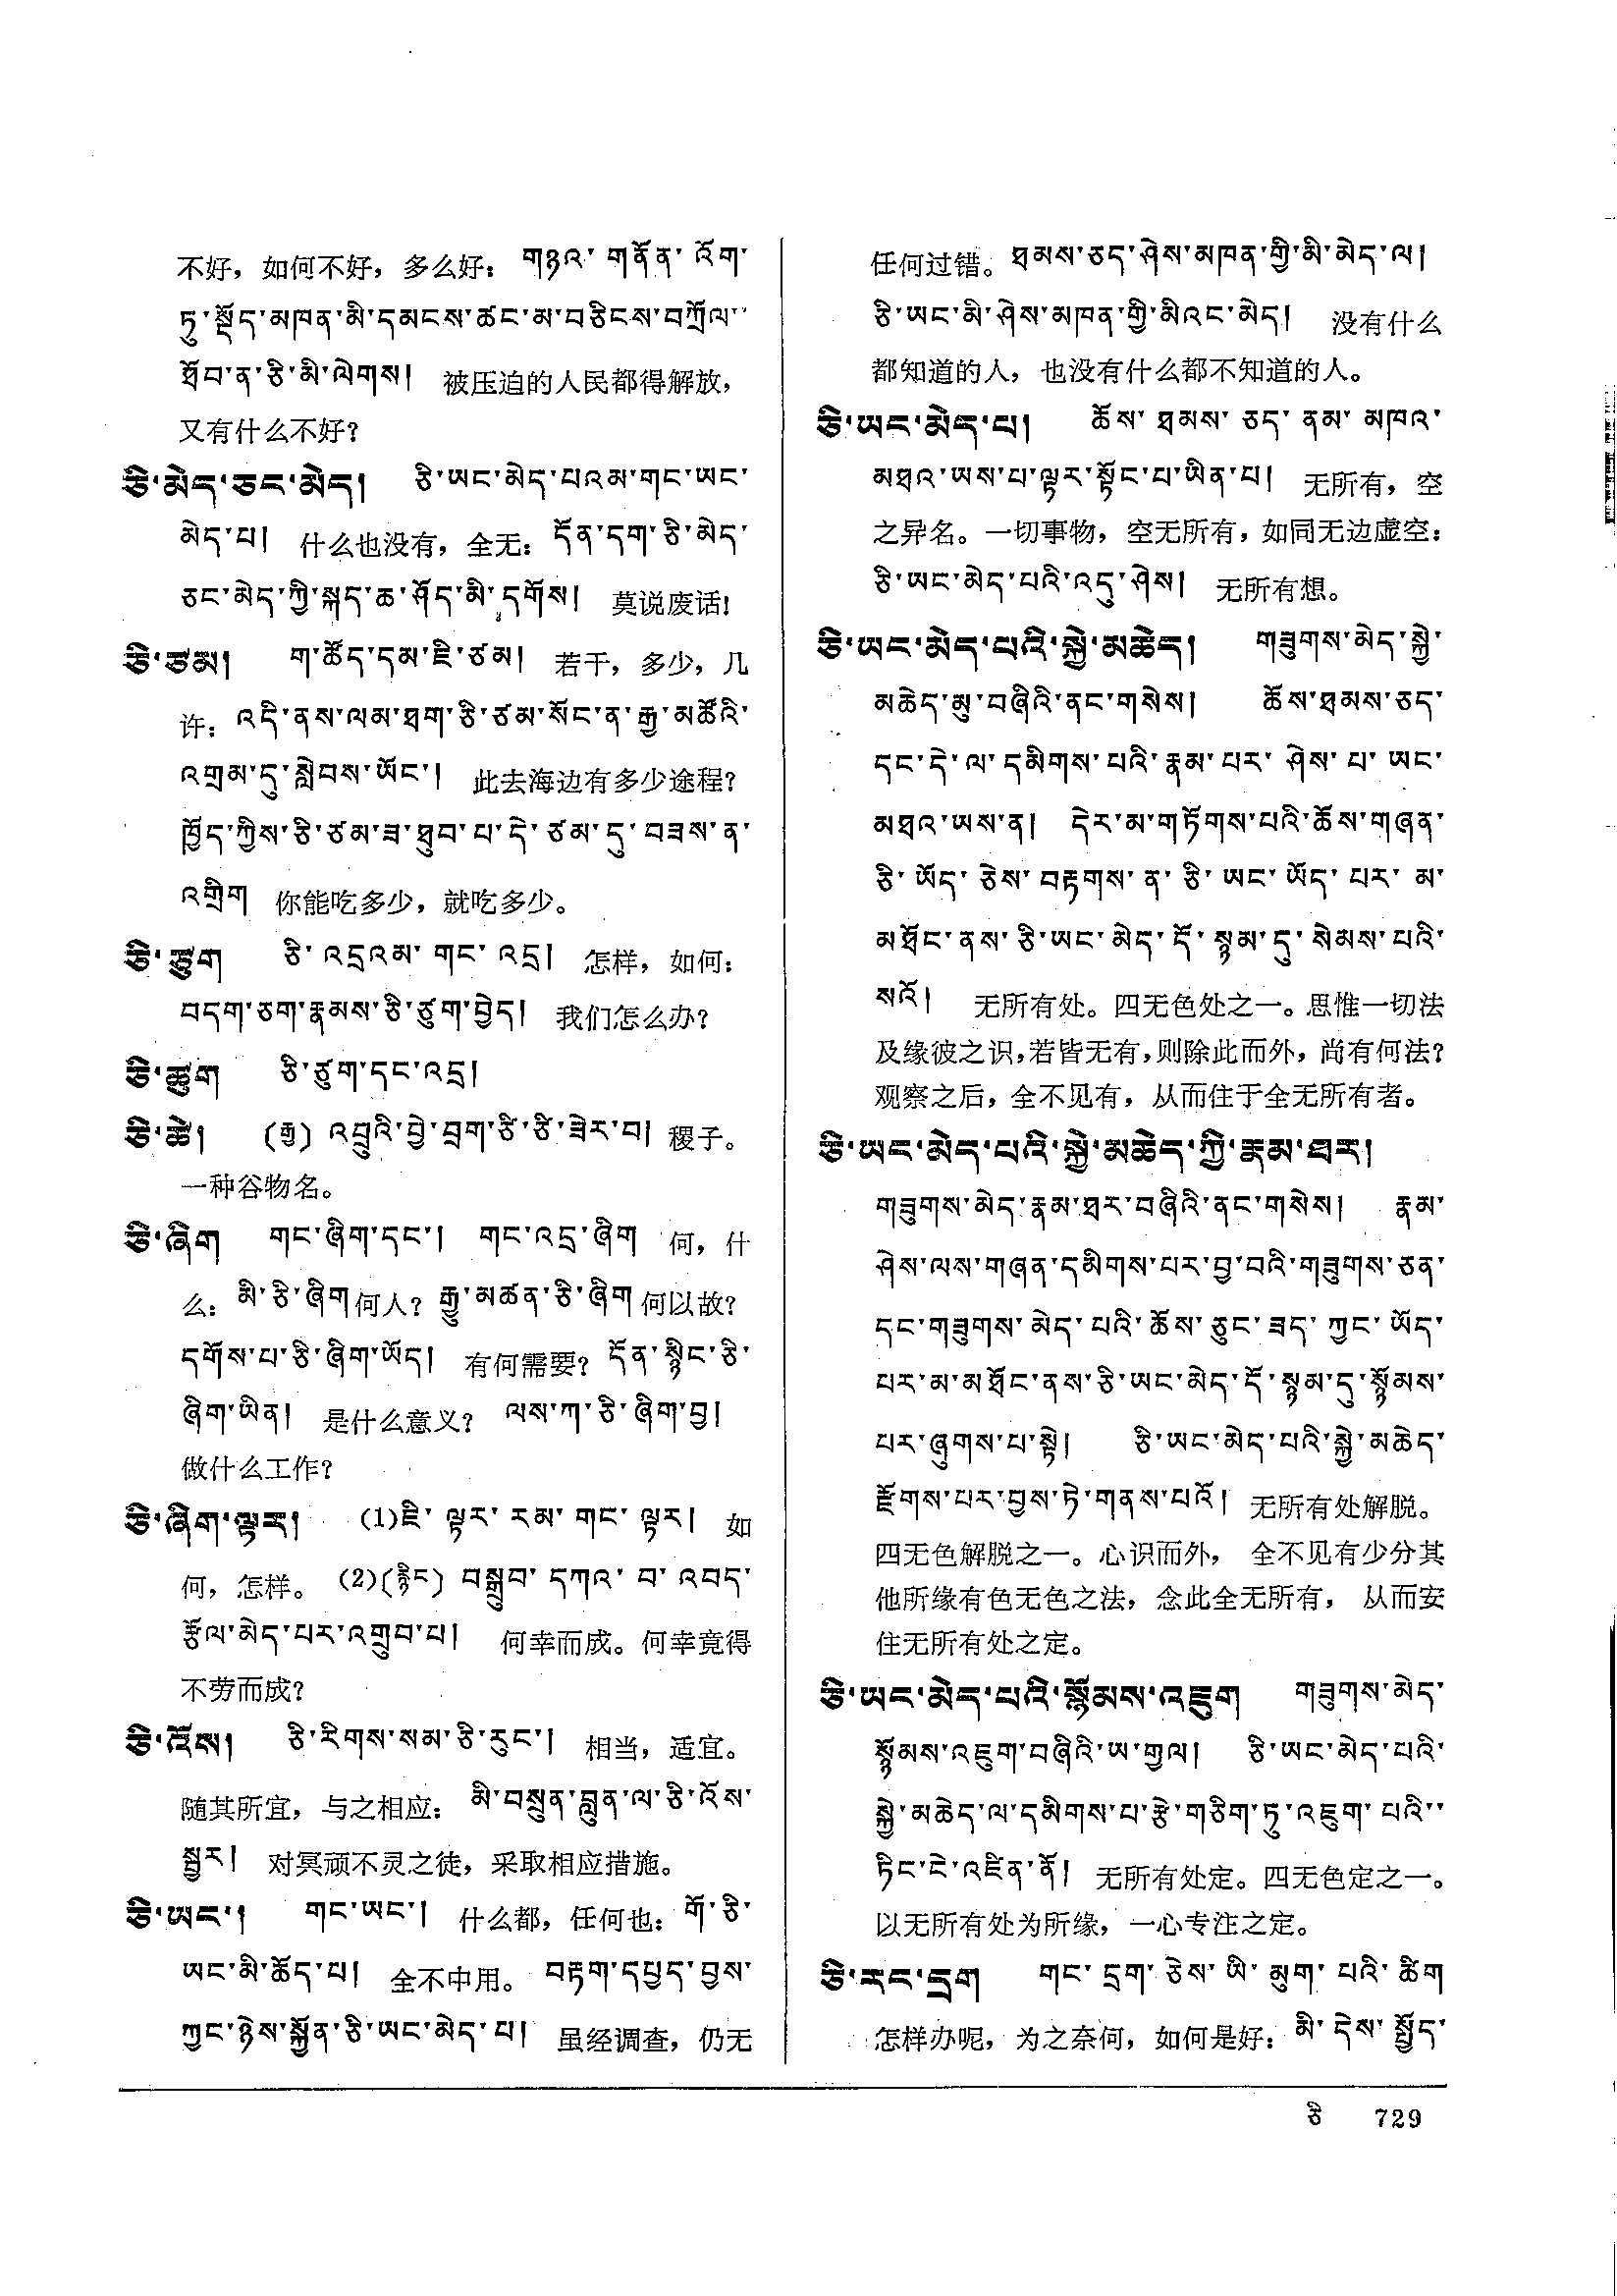 不好，如何不好，多么好： གཉའ་ གནོན་ འོག་
ཏུ་སྡོད་མཁན་མི་དམངས་ཚང་མ་བཅིངས་བཀྲོལ་
ཐོབ་ན་ཅི་མི་ལེགས། 被压迫的人民都得解放，
又有什么不好？
ཅི་མེད་ཅང་མེད། ཅི་ཡང་མེད་པའམ་གང་ཡང་
མེད་པ། 什么也没有，全无：དོན་དག་ཅི་མེད་
ཅང་མེད་ཀྱི་སྐད་ཆ་ཤོད་མི་དགོས། 莫说废话！
ཅི་ཙམ། ག་ཚོད་དམ་ཇི་ཙམ། 若干，多少，几
许：འདི་ནས་ལམ་ཐག་ཅི་ཙམ་སོང་ན་རྒྱ་མཚོའི་
འགྲམ་དུ་སླེབས་ཡོང་། 此去海边有多少途程？
ཁྱོད་ཀྱིས་ཅི་ཙམ་ཟ་ཐུབ་པ་དེ་ཙམ་དུ་བཟས་ན་
འགྲིག 你能吃多少，就吃多少。
ཅི་ཙུག ཅི་ འདྲའམ་ གང་ འདྲ། 怎样，如何：
བདག་ཅག་རྣམས་ཅི་ཙུག་བྱེད། 我们怎么办？
ཅི་ཚུག ཅི་ཙུག་དང་འདྲ།
ཅི་ཚེ། (རྒྱ) འབྲུའི་བྱེ་བྲག་ཙི་ཙི་ཟེར་བ། 稷子。
一种谷物名。
ཅི་ཞིག གང་ཞིག་དང་། གང་འདྲ་ཞིག 何，什
么：མི་ཅི་ཞིག何人？རྒྱུ་མཚན་ཅི་ཞིག何以故？
དགོས་པ་ཅི་ཞིག་ཡོད། 有何需要？དོན་སྙིང་ཅི་
ཞིག་ཡིན། 是什么意义？ ལས་ཀ་ཅི་ཞིག་བྱ།
做什么工作？
ཅི་ཞིག་ལྟར། (1)ཇི་ ལྟར་ རམ་ གང་ ལྟར། 如
何，怎样。 (2)(རྙིང) བསྒྲུབ་ དཀའ་ བ་ འབད་
རྩོལ་མེད་པར་འགྲུབ་པ། 何幸而成。何幸竟得
不劳而成？
ཅི་འོས། ཅི་རིགས་སམ་ཅི་རུང་། 相当，适宜。
随其所宜，与之相应：མི་བསྲུན་བླུན་ལ་ཅི་འོས་
སྦྱར། 对冥顽不灵之徒，采取相应措施。
ཅི་ཡང་། གང་ཡང་། 什么都，任何也：གོ་ཅི་
ཡང་མི་ཆོད་པ། 全不中用。 བརྟག་དཔྱད་བྱས་
ཀྱང་ཉེས་སྐྱོན་ཅི་ཡང་མེད་པ། 虽经调查，仍无
任何过错。ཐམས་ཅད་ཤེས་མཁན་གྱི་མི་མེད་ལ།
ཅི་ཡང་མི་ཤེས་མཁན་གྱི་མིའང་མེད། 没有什么
都知道的人，也没有什么都不知道的人。
ཅི་ཡང་མེད་པ། ཆོས་ ཐམས་ ཅད་ ནམ་ མཁའ་
མཐའ་ཡས་པ་ལྟར་སྟོང་པ་ཡིན་པ། 无所有，空
之异名。一切事物，空无所有，如同无边虚空：
ཅི་ཡང་མེད་པའི་འདུ་ཤེས། 无所有想。
ཅི་ཡང་མེད་པའི་སྐྱེ་མཆེད། གཟུགས་མེད་སྐྱེ་
མཆེད་མུ་བཞིའི་ནང་གསེས། ཆོས་ཐམས་ཅད་
དང་དེ་ལ་དམིགས་པའི་རྣམ་པར་ ཤེས་པ་ ཡང་
མཐའ་ཡས་ན། དེར་མ་གཏོགས་པའི་ཆོས་གཞན་
ཅི་ ཡོད་ ཅེས་བརྟགས་ན་ ཅི་ ཡང་ ཡོད་ པར་ མ་
མཐོང་ནས་ཅི་ཡང་མེད་དོ་སྙམ་དུ་སེམས་པའི་
སའོ། 无所有处。四无色处之一。思惟一切法
及缘彼之识，若皆无有，则除此而外，尚有何法？
观察之后，全不见有，从而住于全无所有者。
ཅི་ཡང་མེད་པའི་སྐྱེ་མཆེད་ཀྱི་རྣམ་ཐར།
གཟུགས་མེད་རྣམ་ཐར་བཞིའི་ནང་གསེས། རྣམ་
ཤེས་ལས་གཞན་དམིགས་པར་བྱ་བའི་གཟུགས་ཅན་
དང་གཟུགས་མེད་པའི་ཆོས་ཅུང་ཟད་ཀྱང་ཡོད་
པར་མ་མཐོང་ནས་ཅི་ཡང་མེད་དོ་སྙམ་དུ་སྙོམས་
པར་ཞུགས་པ་སྟེ། ཅི་ཡང་མེད་པའི་སྐྱེ་མཆེད་
རྫོགས་པར་བྱས་ཏེ་གནས་པའོ། 无所有处解脱。
四无色解脱之一。心识而外， 全不见有少分其
他所缘有色无色之法，念此全无所有， 从而安
住无所有处之定。
ཅི་ཡང་མེད་པའི་སྙོམས་འཇུག གཟུགས་མེད་
སྙོམས་འཇུག་བཞིའི་ཡ་གྱལ། ཅི་ཡང་མེད་པའི་
སྐྱེ་མཆེད་ལ་དམིགས་པ་རྩེ་གཅིག་ཏུ་འཇུག་པའི་
ཏིང་ངེ་འཛིན་ནོ། 无所有处定。四无色定之一。
以无所有处为所缘，一心专注之定。
ཅི་རང་དྲག གང་ དྲག་ ཅེས་ ཡི་ མུག་ པའི་ ཚིག
怎样办呢，为之奈何，如何是好：མི་ དེས་ སྤྱོད་
ཅི 729